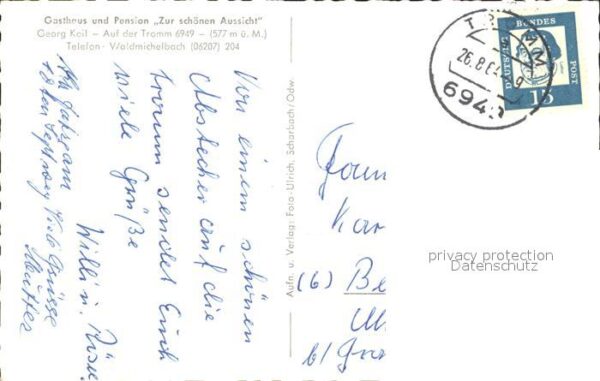 Gasthaus und Pension „Zur schönen Aussicht"
Georg Keil – Auf der Tromm 6949 – (577 m ü. M.)
Telefon - Waldmichelbach (06207) 204
Von einem schönen
Abstecher auf die
Tromm sendet Euch
viele Grüße
Willi u. Rösi
Viele Grüsse
Mutter
Aufn. u. Verlag: Foto-Ulrich, Scharbach/Odw.
Fam
Kar
(6) Be
TROMM
26.8.6
694
DEUTSCHE
BUNDES
POST
15
privacy protection
Datenschutz